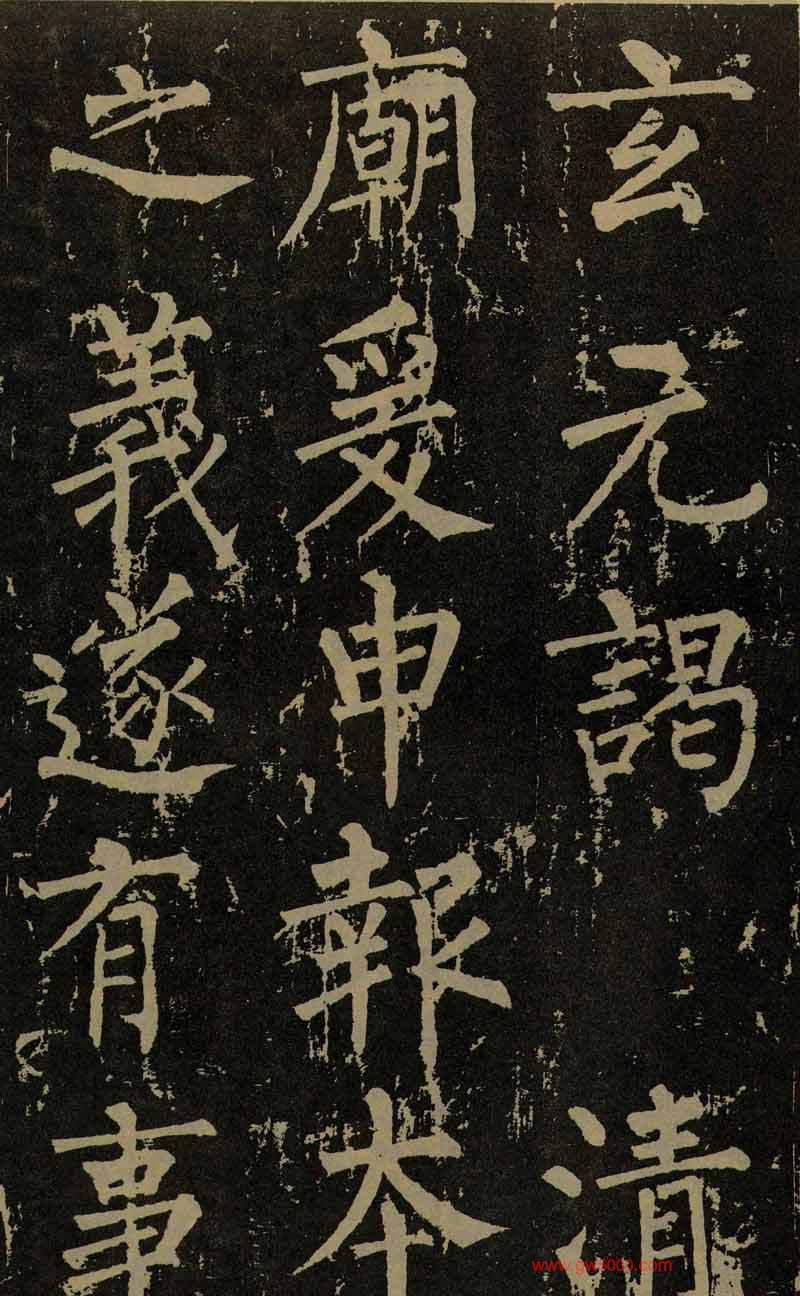 玄元謁 清
廟爰申報本
之義遂有事
www.gw8000.com